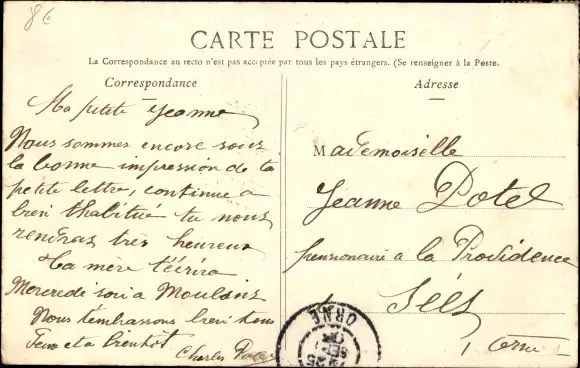 8€
CARTE POSTALE
La Correspondance au recto n'est pas acceptée par tous les pays étrangers. (Se renseigner à la Poste.
Correspondance
Adresse
Ma petite Jeanne
Nous sommes encore sous
la bonne impression de ta
petite lettre, continue a
bien t'habitué tu nous
rendras très heureux
Ta mère t'écrira
Mercredi soir a Moulins
Nous t'embrassons bien tous
et a bientôt
Charles
Mademoiselle
Jeanne Potel
pensionnaire a la Providence
Séez
Orne
ORNE
25